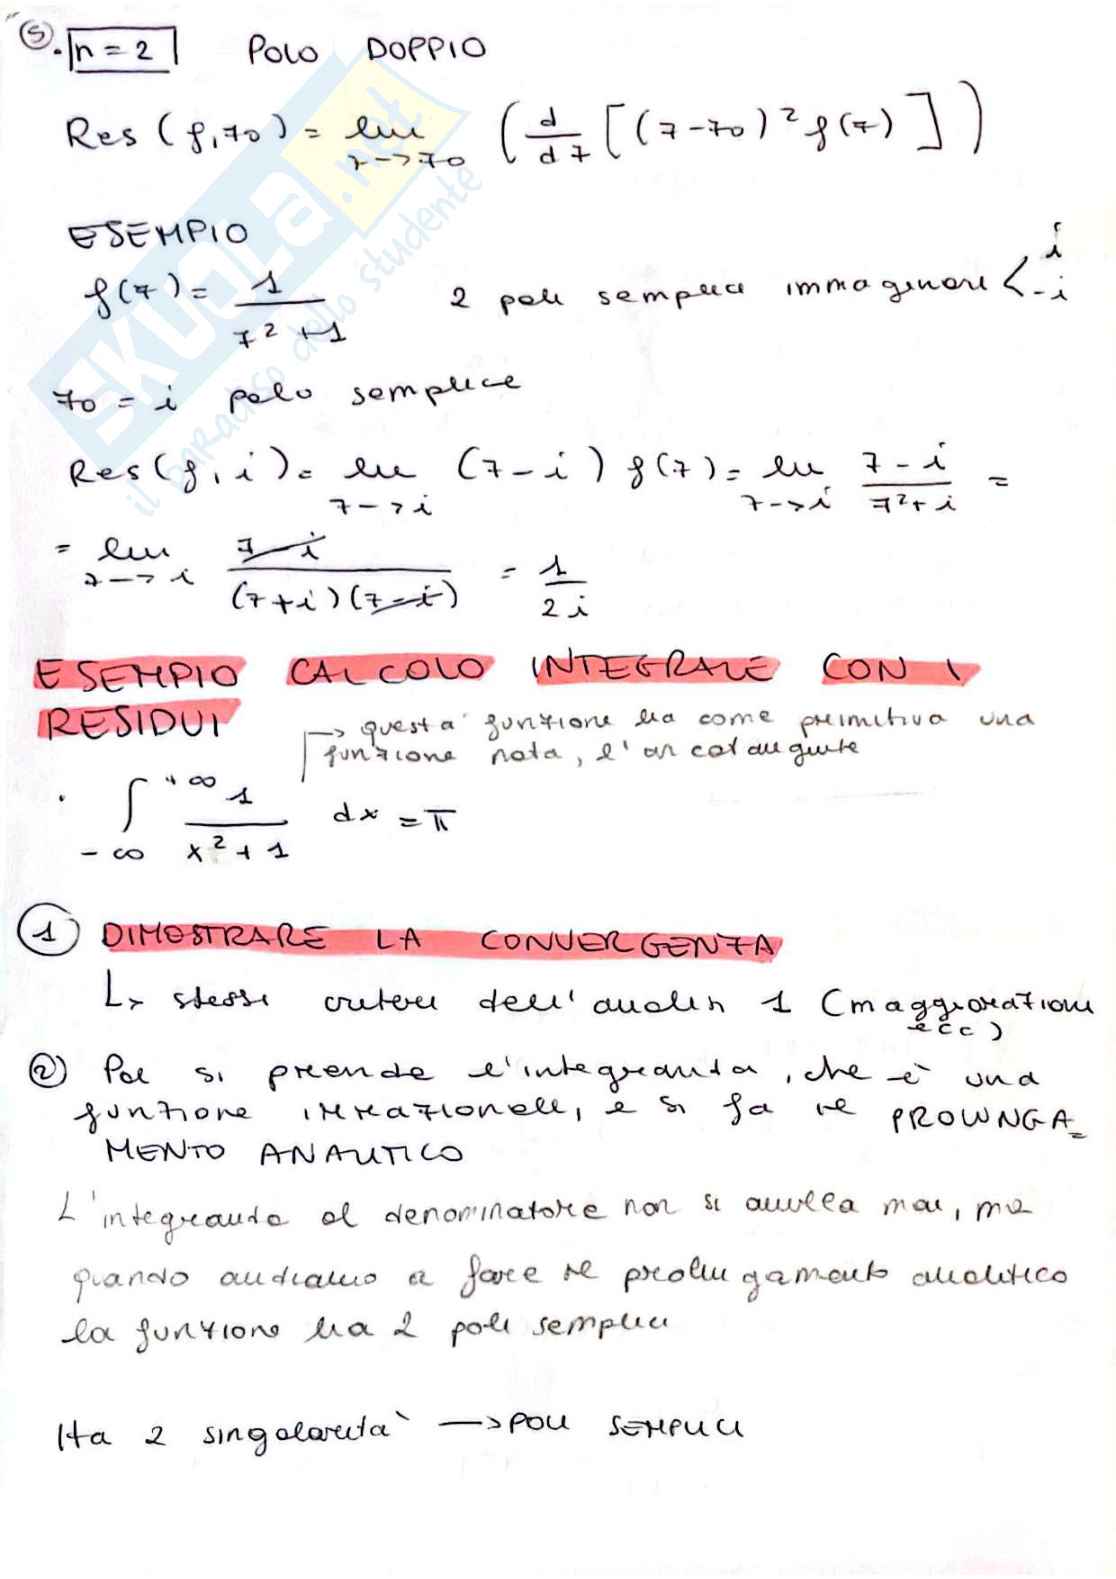 ⑤ . n = 2 POLO DOPPIO
Res (f, z0) = lim z->z0 ( d/dz [ (z-z0)² f(z) ] )
ESEMPIO
f(z) = 1/(z² + 1) 2 poli semplici immaginari < i -i
z0 = i polo semplice
Res(f, i) = lim z->i (z-i) f(z) = lim z->i (z-i)/(z²+i) =
= lim z->i (z-i)/((z+i)(z-i)) = 1/2i
ESEMPIO CALCOLO INTEGRALE CON I
RESIDUI
-> questa funzione ha come primitiva una
funzione nota, l'arcotangente
. ∫ -∞ +∞ 1/(x² + 1) dx = π
① DIMOSTRARE LA CONVERGENZA
L> stessi criteri dell'analisi 1 (maggiorazioni
ecc)
② Poi si prende l'integranda, che è una
funzione irrazionale, e si fa il PROLUNGA=
MENTO ANALITICO
L'integranda al denominatore non si annulla mai, ma
quando andiamo a fare il prolungamento analitico
la funzione ha 2 poli semplici
Ha 2 singolarità -> POLI SEMPLICI
SKUOLA.net
il paradiso dello studente